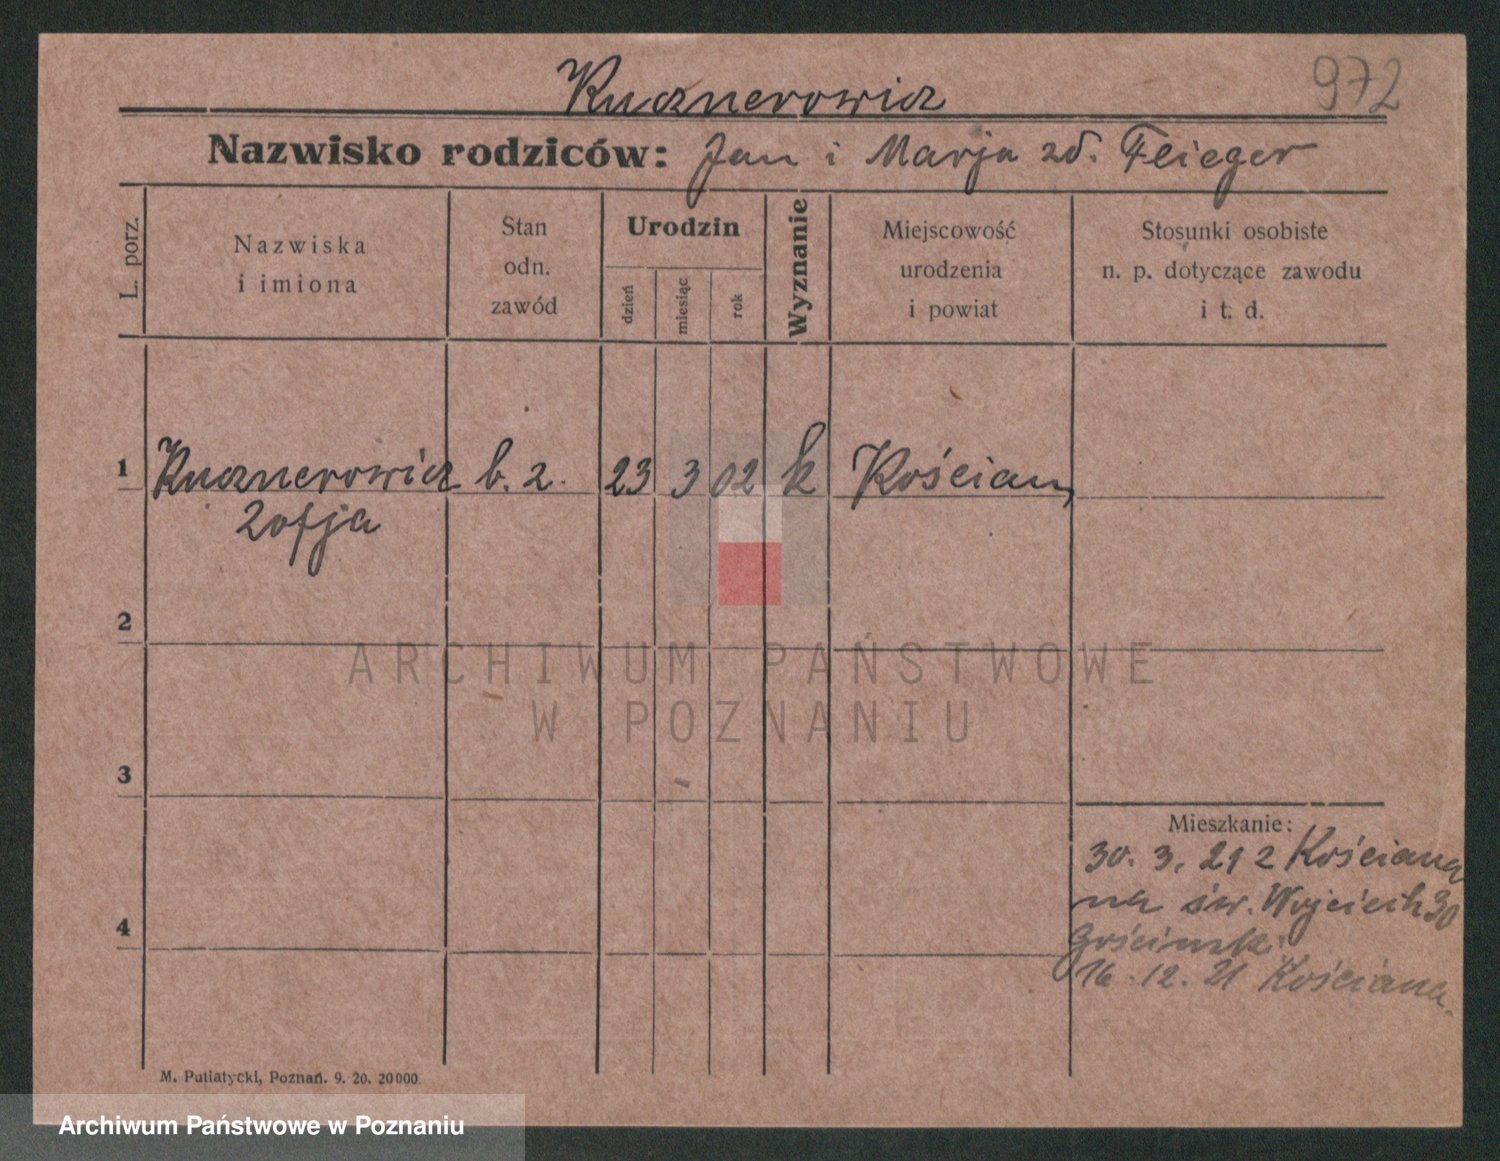 972
Kucznerowicz
Nazwisko rodziców: Jan i Marja zd. Flieger
L. porz.
Nazwiska
i imiona
Stan
odn.
zawód
Urodzin
dzień
miesiąc
rok
Wyznanie
Miejscowość
urodzenia
i powiat
Stosunki osobiste
n. p. dotyczące zawodu
i t. d.
1 Kucznerowicz b. z. 23 3 02 k Kościan
Zofja
2
ARCHIWUM PAŃSTWOWE
W POZNANIU
3
Mieszkanie:
30. 3. 21 z Kościana
na św. Wojciech 30
4
16. 12. 21 Kościana
M. Putiatycki, Poznań. 9. 20. 20000.
Archiwum Państwowe w Poznaniu